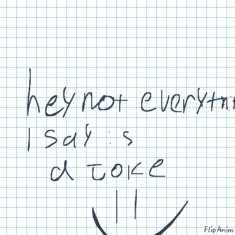 hey not everythi
I say is
a joke
FlipAnim